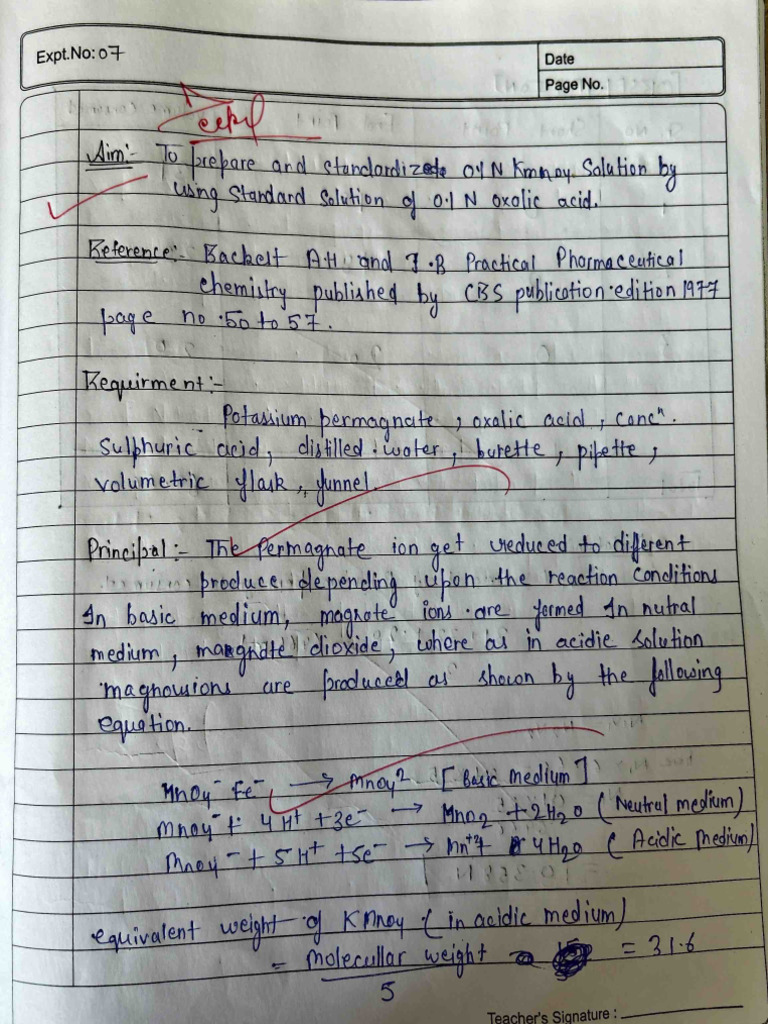 Expt.No: 07
Date
Page No.
Aim:- To prepare and standardize 0.1 N Kmnoy Solution by
using Standard Solution of 0.1 N oxolic acid.
Reference:- Backest A.H and J.B Practical Pharmaceutical
chemistry published by CBS publication.edition 1977
page no .50 to 57.
Requirment:-
Potassium permagnate , oxalic acid , concn.
Sulphuric acid, distilled water, burette, pipette,
volumetric flask, funnel.
Principal:- The Permagnate ion get reduced to different
produce depending upon the reaction conditions
In basic medium, magnate ions are formed In nutral
medium, dioxide, where as in acidic solution
magnousions are produced as shown by the following
equation.
Mnoy⁻ Fe⁻ → Mnoy² [Basic medium]
Mnoy⁻ + 4H⁺ + 3e⁻ → Mno₂ + 2H₂o (Neutral medium)
Mnoy⁻ + 5H⁺ + 5e⁻ → Mn⁺² + 4H₂o (Acidic medium)
equivalent weight of KMnoy (in acidic medium)
= molecullar weight = 31.6
5
Teacher's Signature :